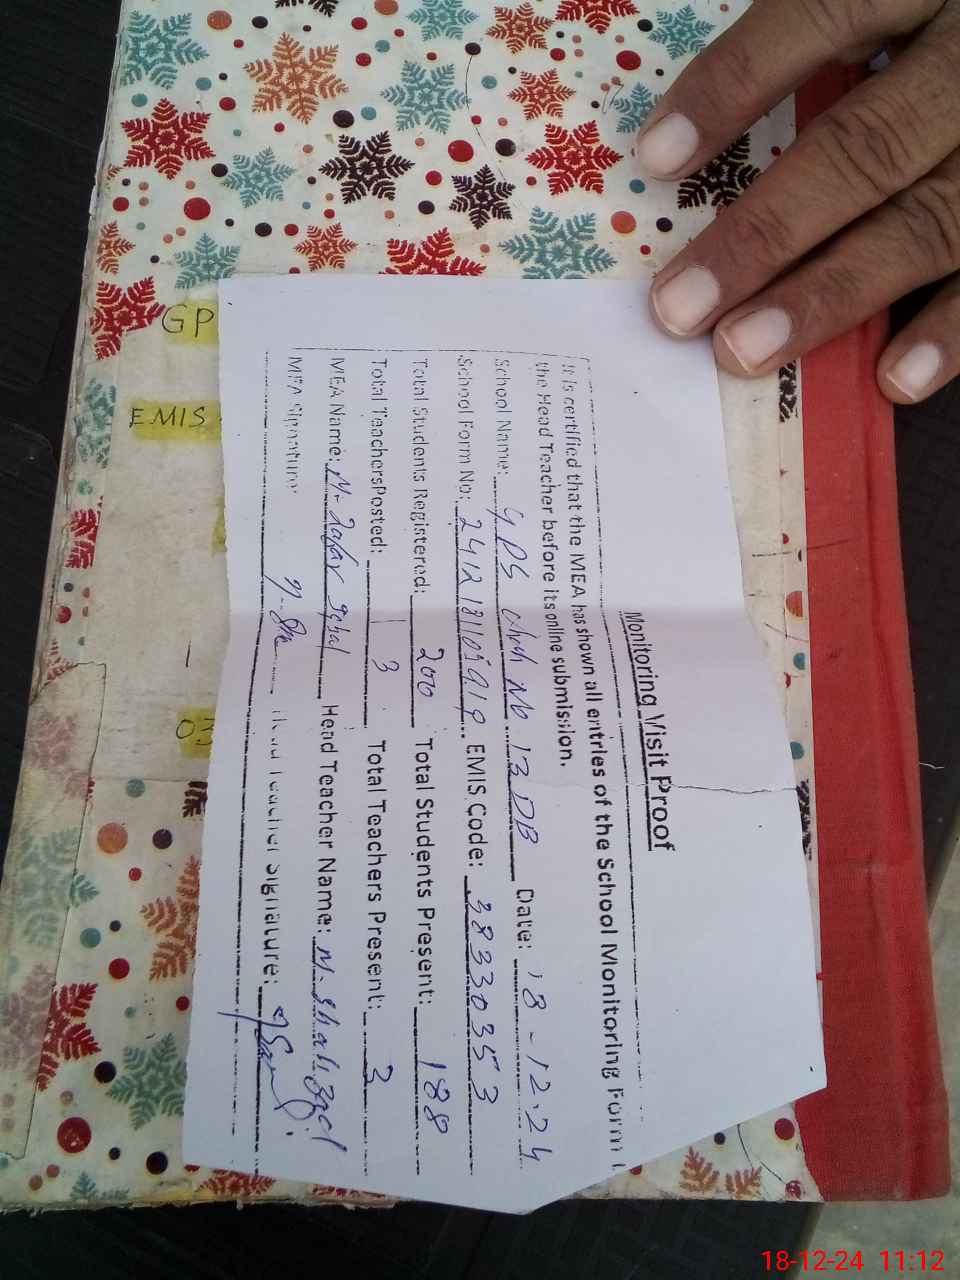 Monitoring Visit Proof
It is certified that the MEA has shown all entries of the School Monitoring Form
the Head Teacher before its online submission.
School Name: GPS Chak No 13DB Date: 18-12-24
School Form No: EMIS Code: 38330353
Total Students Registered: 200 Total Students Present: 188
Total TeachersPosted: 3 Total Teachers Present: 3
MEA Name: M. Zafar Iqbal Head Teacher Name: M.
MEA Signature Head Teacher Signature:
GP
EMIS
03
18-12-24 11:12